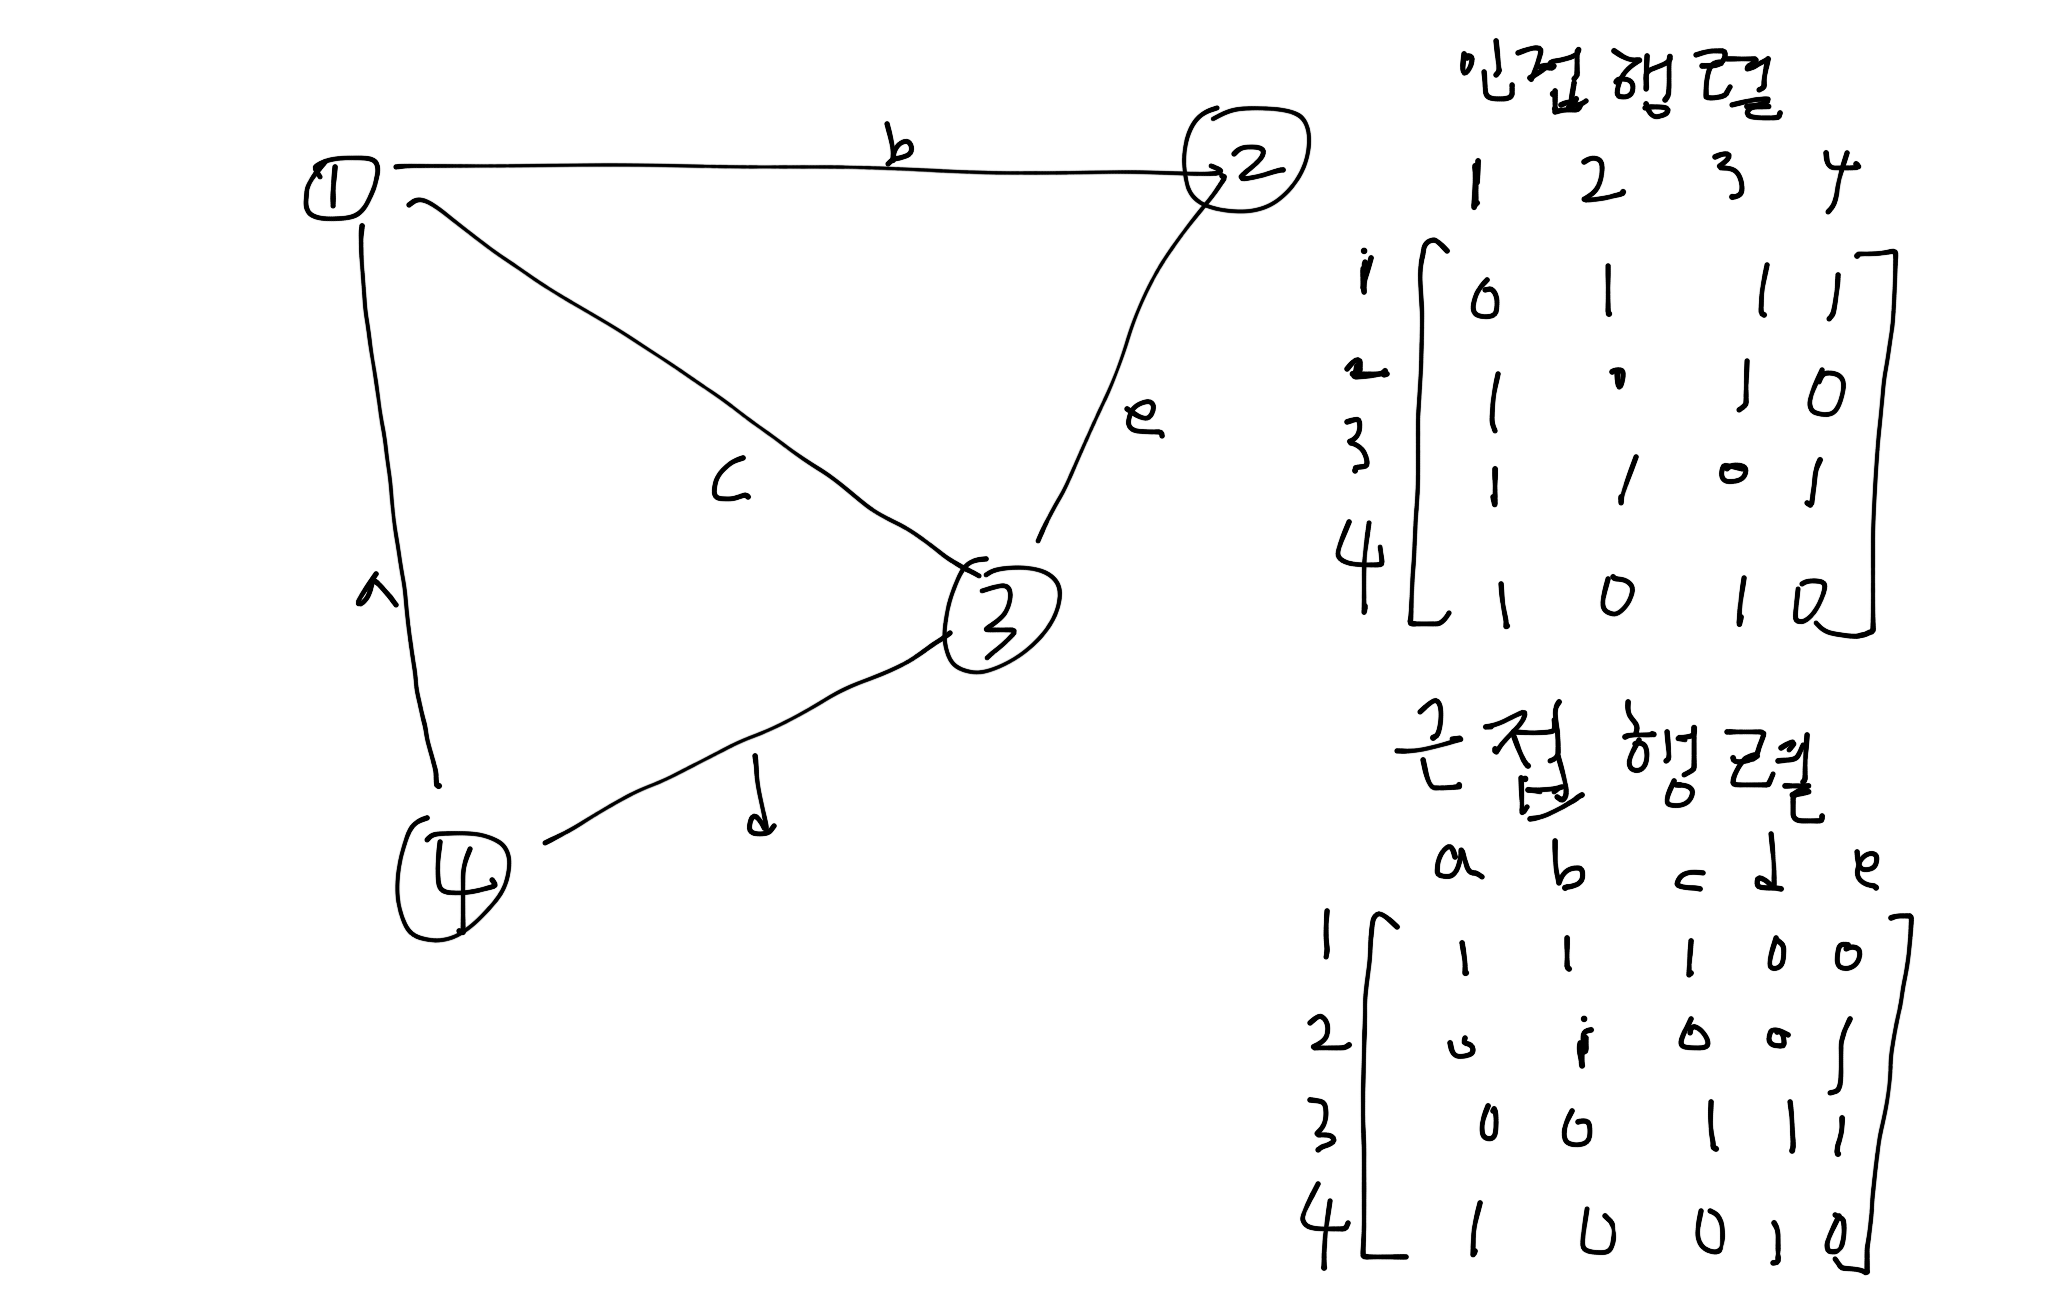 1 b 2
c e
a 3
d
4
인접 행렬
1 2 3 4
1 0 1 1 1
2 1 0 1 0
3 1 1 0 1
4 1 0 1 0
근접 행렬
a b c d e
1 1 1 1 0 0
2 0 1 0 0 1
3 0 0 1 1 1
4 1 0 0 1 0